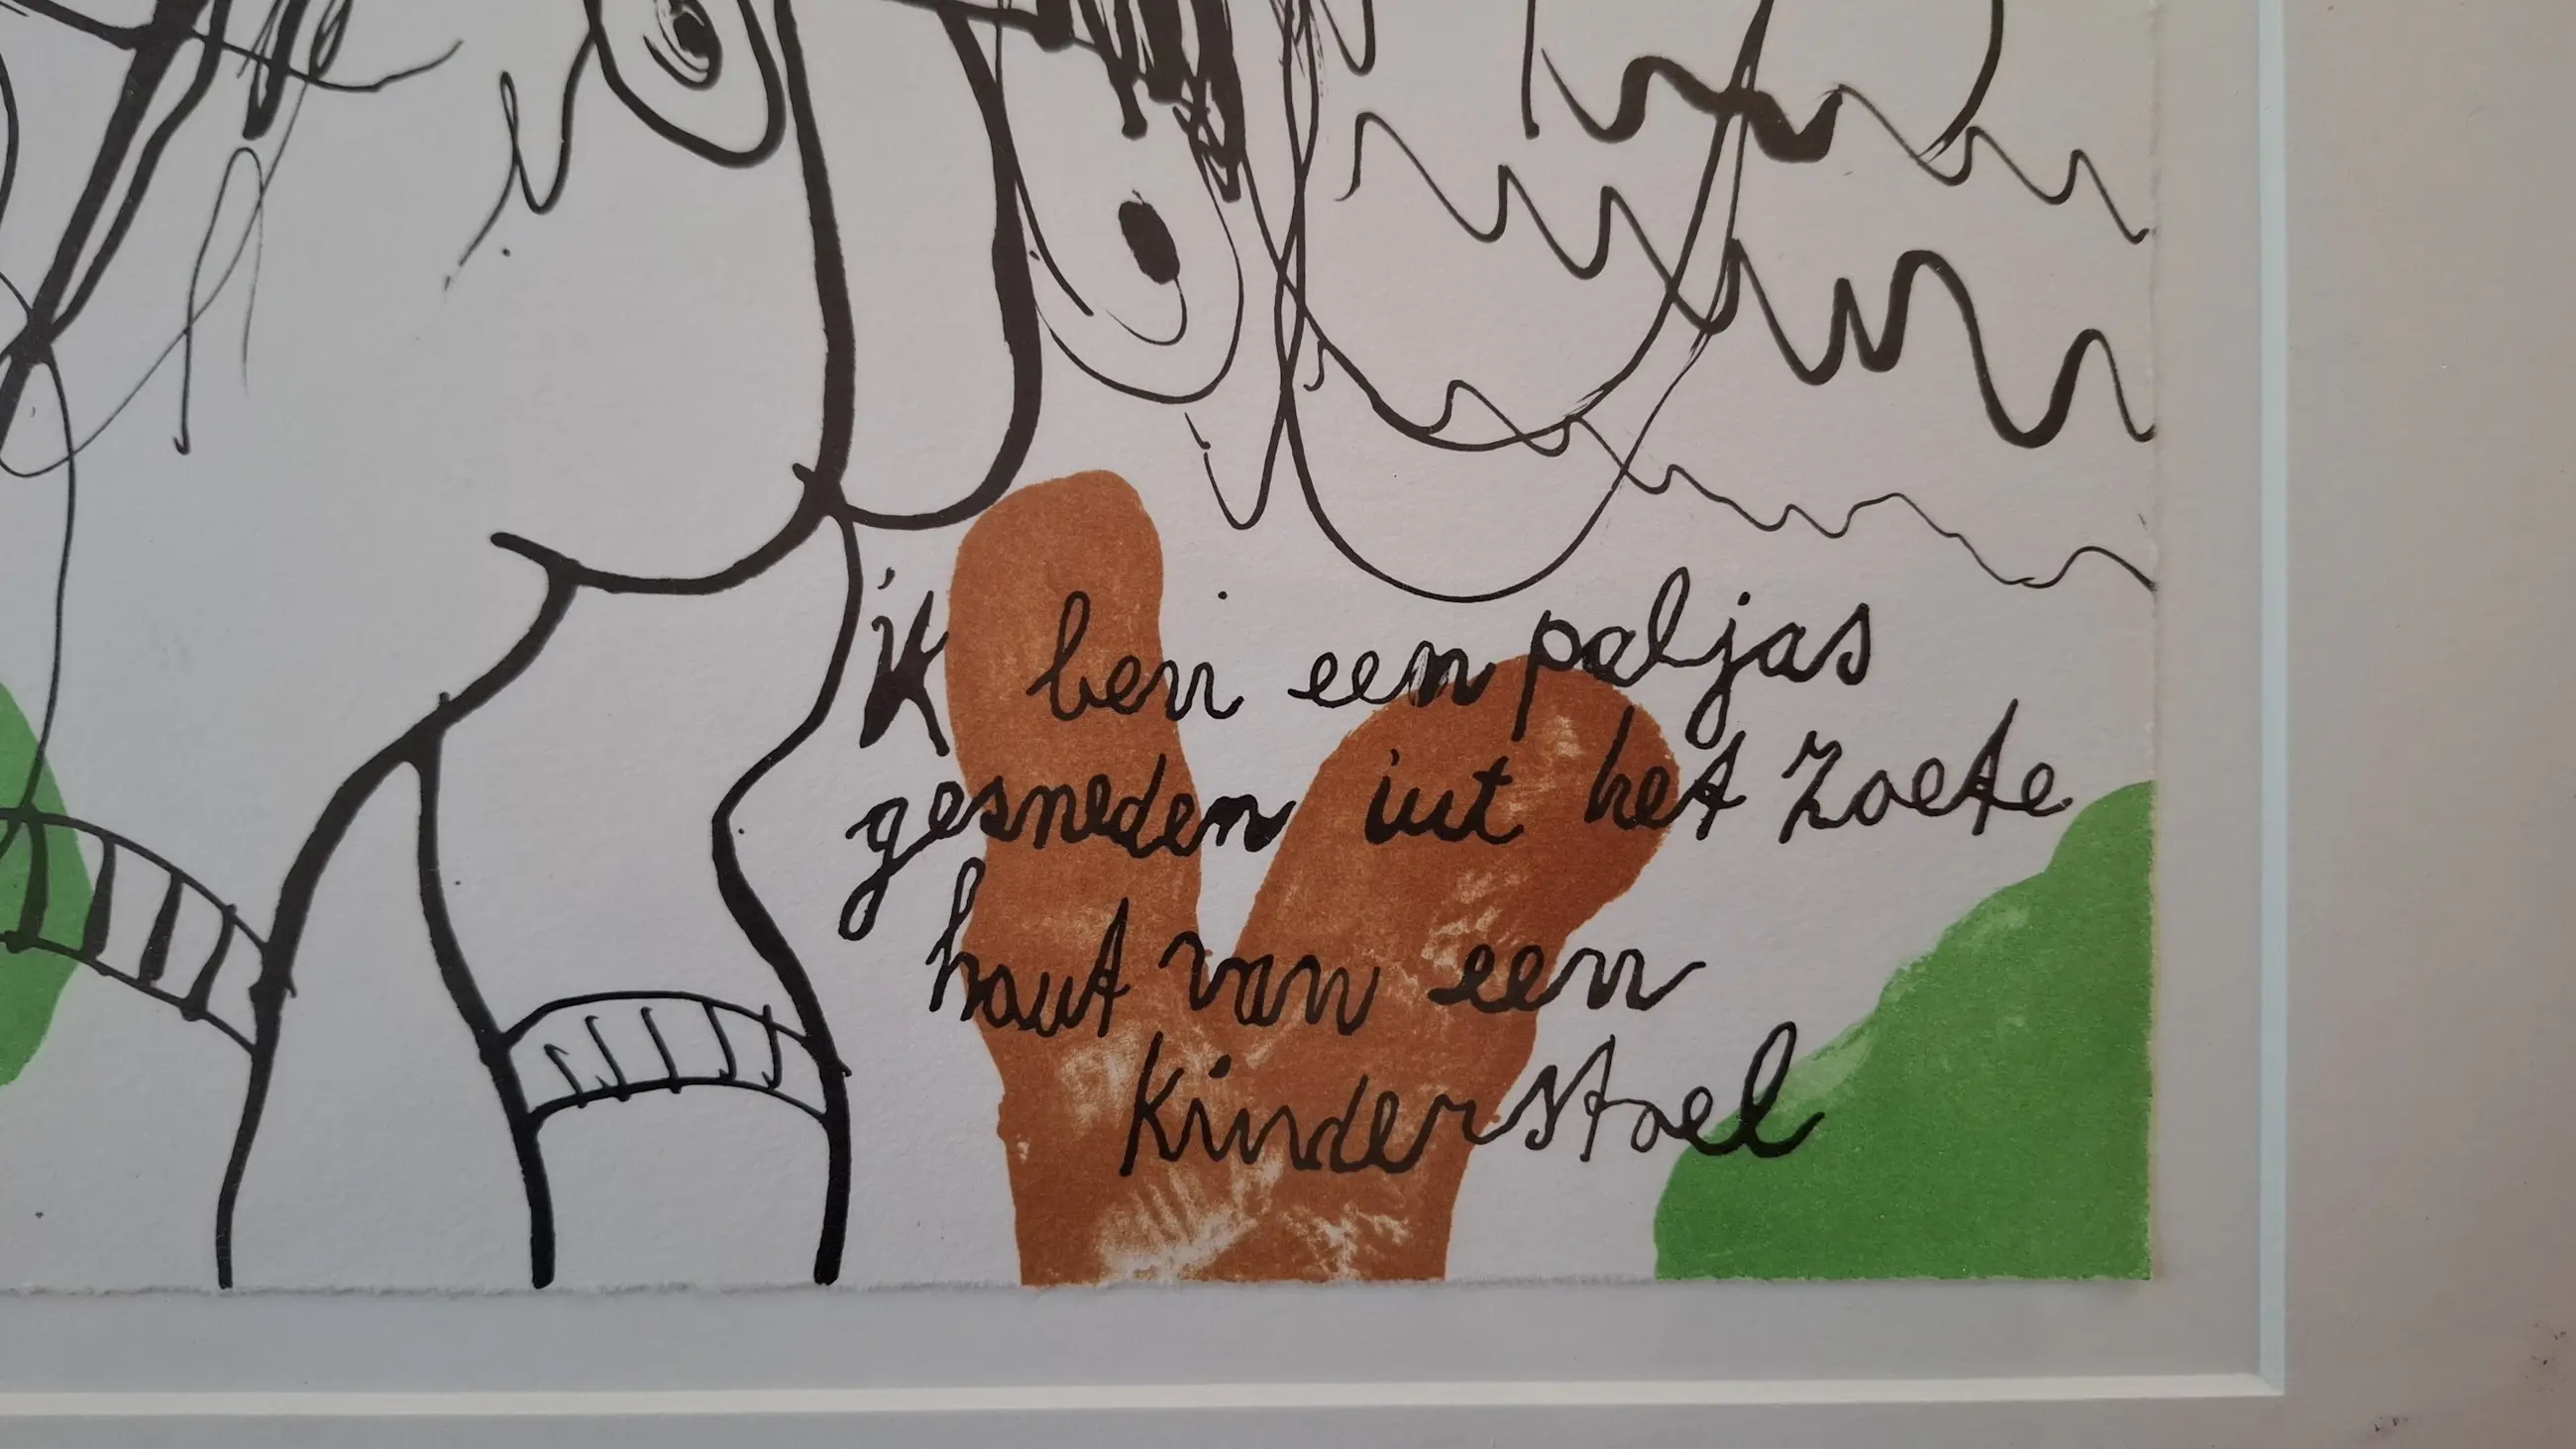 ik ben een paljas
gesneden uit het zoete
hout van een
kinderstoel